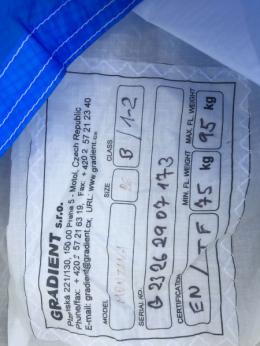 GRADIENT s.r.o.
Plzeňská 221/130, 150 00 Praha 5 - Motol, Czech Republic
Phone/fax: + 420 2 57 21 63 19, Fax: + 420 2 57 21 23 40
E-mail: gradient@gradient.cx, URL: www.gradient.cx
MODEL
SIZE
CLASS
B / 1-2
SERIAL NO.
CERTIFICATION
MIN. FL WEIGHT
MAX. FL WEIGHT
EN / LTF
75 kg
95 kg